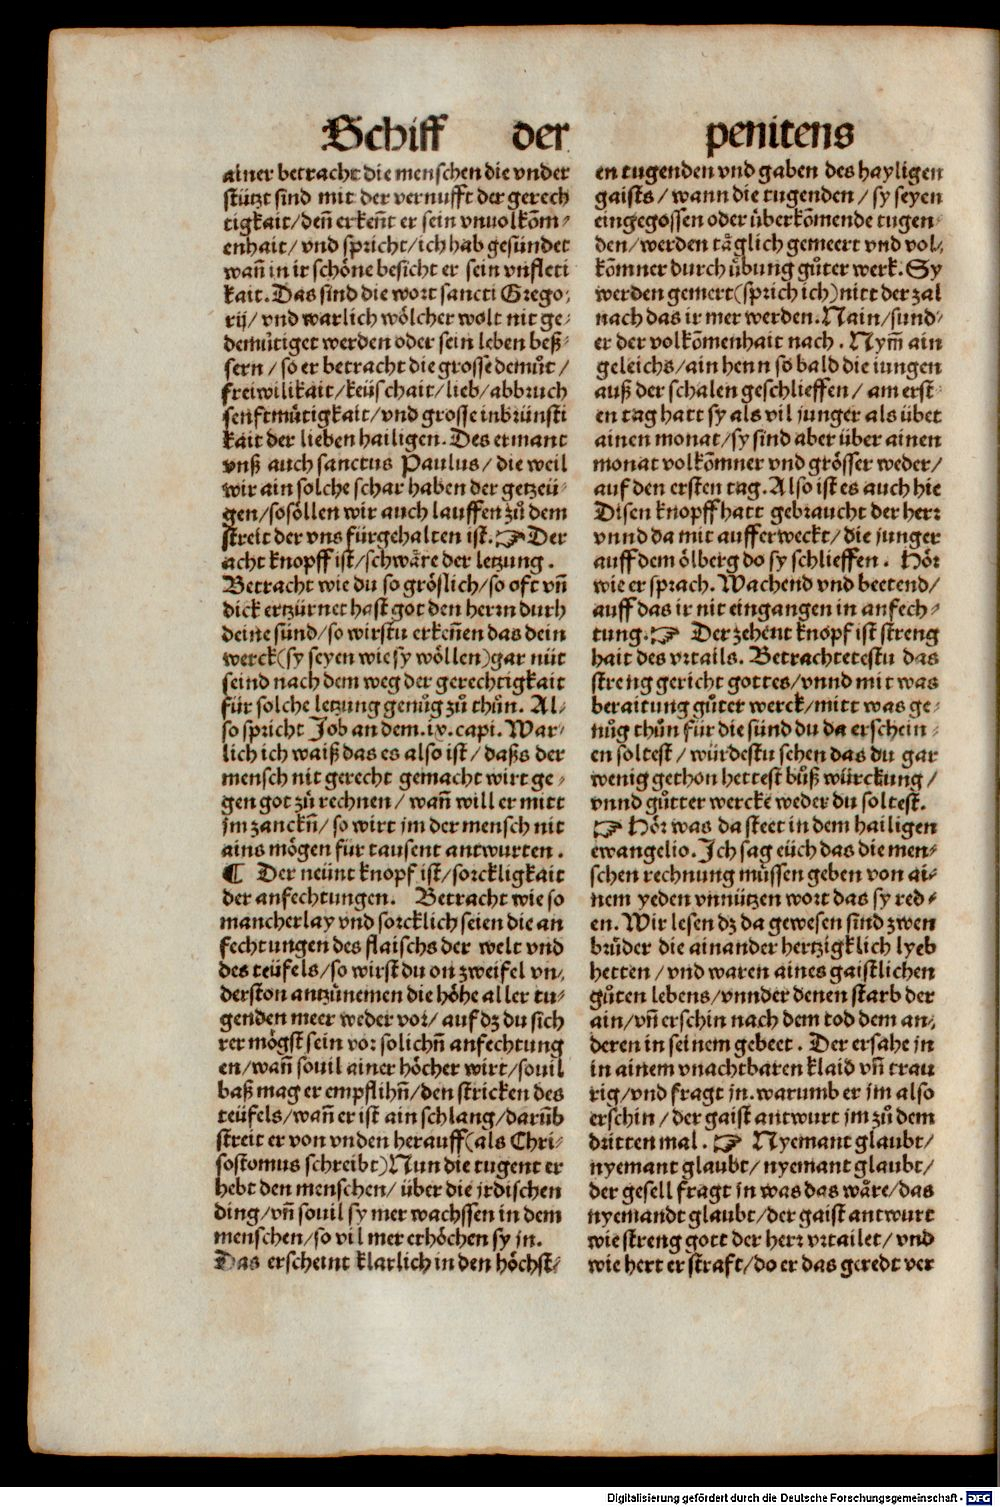 Schiff der penitens
ainer betracht die menschen die vnder
stützt sind mit der vernufft der gerech
tigkait/ den̄ erken̄t er sein vnuolkōm⸗
enhait/ vnd spricht/ich hab gesündet
wan̄ in ir schöne besicht er sein vnfleti
kait. Das sind die wort sancti Grego⸗
rij/ vnd warlich wölcher wolt nit ge⸗
demütiget werden oder sein leben beß⸗
sern/ so er betracht die grosse demůt/
freiwilikait/keüschait/lieb/abbruch
senftmůtigkait/vnd grosse inbrünsti
kait der lieben hailigen. Des ermant
vnß auch sanctus Paulus/ die weil
wir ain solche schar haben der getzeü⸗
gen/sosöllen wir auch lauffen zů dem
streit der vns fürgehalten ist. ☞ Der
acht knopff ist/schwäre der letzung.
Betracht wie du so gröslich/so oft vn̄
dick ertzürnet hast got den herrn durh
deine sünd/so wirstu erken̄en das dein
werck(sy seyen wie sy wöllen)gar nüt
seind nach dem weg der gerechtigkait
für solche letzung genůg zů thůn. Al⸗
so spricht Job an dem.ix.capi. War⸗
lich ich waiß das es also ist/ daßs der
mensch nit gerecht gemacht wirt ge⸗
gen got zů rechnen/ wan̄ will er mitt
jm zanckn̄/ so wirt jm der mensch nit
ains mögen für tausent antwurten.
¶ Der neünt knopf ist/sorckligkait
der anfechtungen. Betracht wie so
mancherlay vnd sorcklich seien die an
fechtungen des flaischs der welt vnd
des teüfels/so wirst du on zweifel vn⸗
derston antzůnemen die höhe aller tu⸗
genden meer weder vor/ auf dz du sich
rer mögst sein vor solichn̄ anfechtung
en/wan̄ souil ainer höcher wirt/souil
baß mag er empflihn̄/den stricken des
teüfels/wan̄ er ist ain schlang/darūb
streit er von vnden herauff(als Chri⸗
sostomus schreibt)Nun die tugent er
hebt den menschen/ über die jrdischen
ding/vn̄ souil sy mer wachssen in dem
menschen/so vil mer erhöchen sy jn.
Das erscheint klarlich in den höchst⸗
en tugenden vnd gaben des hayligen
gaists/ wann die tugenden/ sy seyen
eingegossen oder überkōmende tugen⸗
den/werden täglich gemeert vnd vol⸗
kōmner durch übung gůter werk. Sy
werden gemert(sprich ich)nitt der zal
nach das ir mer werden. Nain/sund⸗
er der volkōmenhait nach. Nym̄ ain
geleichs/ain henn so bald die iungen
auß der schalen geschlieffen/ am erst⸗
en tag hatt sy als vil junger als übet
ainen monat/sy sind aber über ainen
monat volkōmner vnd grösser weder/
auf den ersten tag. Also ist es auch hie
Disen knopff hatt gebraucht der herr
vnnd da mit aufferweckt/die junger
auff dem ölberg do sy schlieffen. Hör
wie er sprach. Wachend vnd beetend/
auff das ir nit eingangen in anfech⸗
tung. ☞ Der zehent knopf ist streng
hait des vrtails. Betrachtetestu das
streng gericht gottes/vnnd mit was
beraitung gůter werck/mitt was ge⸗
nůg thůn für die sünd du da erschein⸗
en soltest/ würdestu sehen das du gar
wenig gethon hettest bůß würckung/
vnnd gůtter werckē weder du soltest.
☞ Hör was da steet in dem hailigen
ewangelio. Ich sag eüch das die men⸗
schen rechnung müssen geben von ai⸗
nem yeden vnnützen wort das sy red⸗
en. Wir lesen dz da gewesen sind zwen
brůder die ainander hertzigklich lyeb
hetten/ vnd waren aines gaistlichen
gůten lebens/vnnder denen starb der
ain/vn̄ erschin nach dem tod dem an⸗
deren in seinem gebeet. Der ersahe jn
in ainem vnachtbaren klaid vn̄ trau
rig/vnd fragt jn. warumb er jm also
erschin/ der gaist antwurt jm zů dem
dritten mal. ☞ Nyemant glaubt/
nyemant glaubt/ nyemant glaubt/
der gesell fragt jn was das wäre/das
nyemandt glaubt/der gaist antwurt
wie streng gott der herr vrtailet/ vnd
wie hert er straft/do er das geredt ver
Digitalisierung gefördert durch die Deutsche Forschungsgemeinschaft - DFG